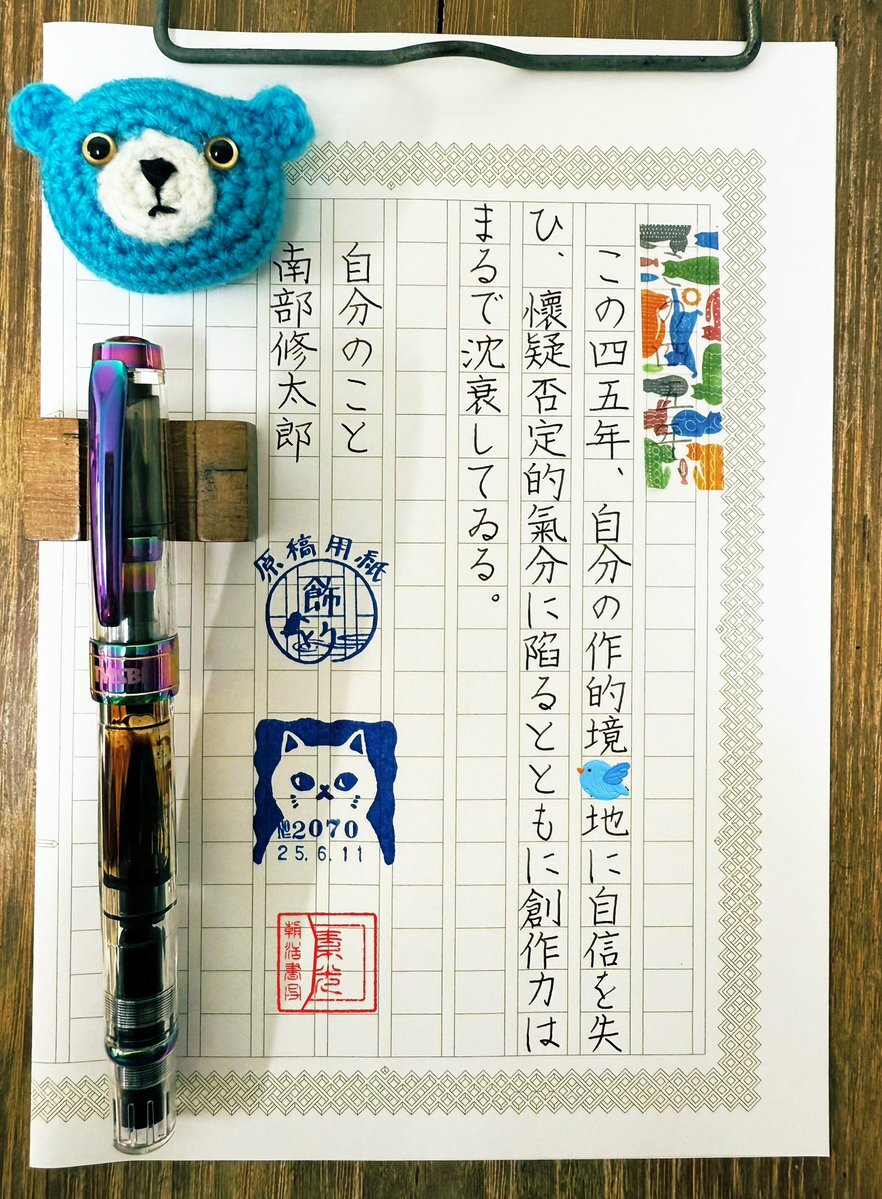 この四五年、自分の作的境地に自信を失
ひ、懷疑否定的氣分に陷るとともに創作力は
まるで沈衰してゐる。
自分のこと
南部修太郎
原稿用紙
飾り
№2070
25.6.11
朝活書写